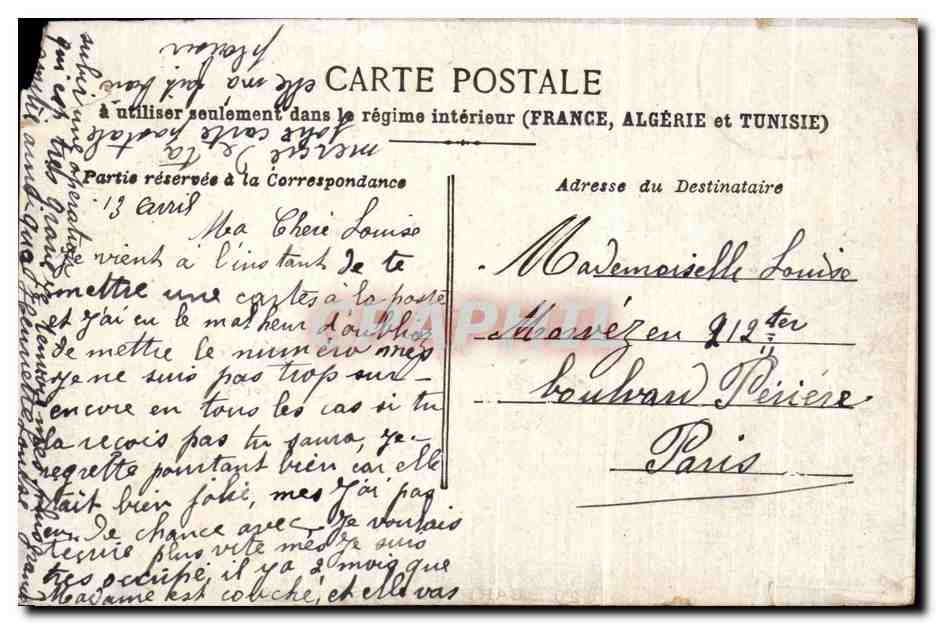 CARTE POSTALE
à utiliser seulement dans le régime intérieur (FRANCE, ALGÉRIE et TUNISIE)
Partie réservée à la Correspondance
13 avril
Ma Chère Louise
Je vient à l'instant de te
mettre une cartes à la poste
et j'ai eu le malheur d'oublier
de mettre le numéro mes
je ne suis pas trop sur
encore en tous les cas si tu
la reçois pas tu saura, je
regrette pourtant bien car elle
était bien jolie, mes j'ai pas
eu de chance avec. Je voulais
t'écrire plus vite mes je suis
très occupé, il y a 2 mois que
Madame est couché, et elle vas
subir une operation
qui est très grave
merçie de ta
jolie carte postale
elle ma fait bien
plaisir
Adresse du Destinataire
Mademoiselle Louise
Morvézen 212 ter
boulvard Périère
Paris
CPAPHIL